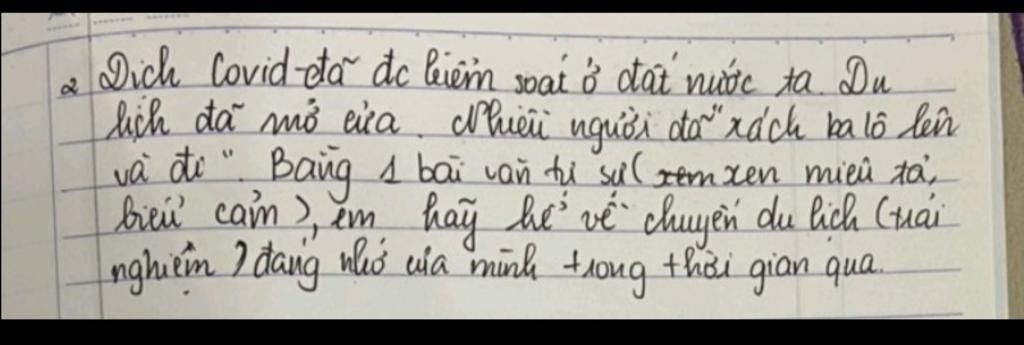 2 Dịch Covid-đã đc kiểm soát ở đất nước ta. Du
lịch đã mở cửa. Nhiều người đã "xách ba lô lên
và đi". Bằng 1 bài văn tự sự ( xem xen miêu tả,
biểu cảm ), em hãy kể về chuyến du lịch (trải
nghiệm ) đáng nhớ của mình trong thời gian qua.